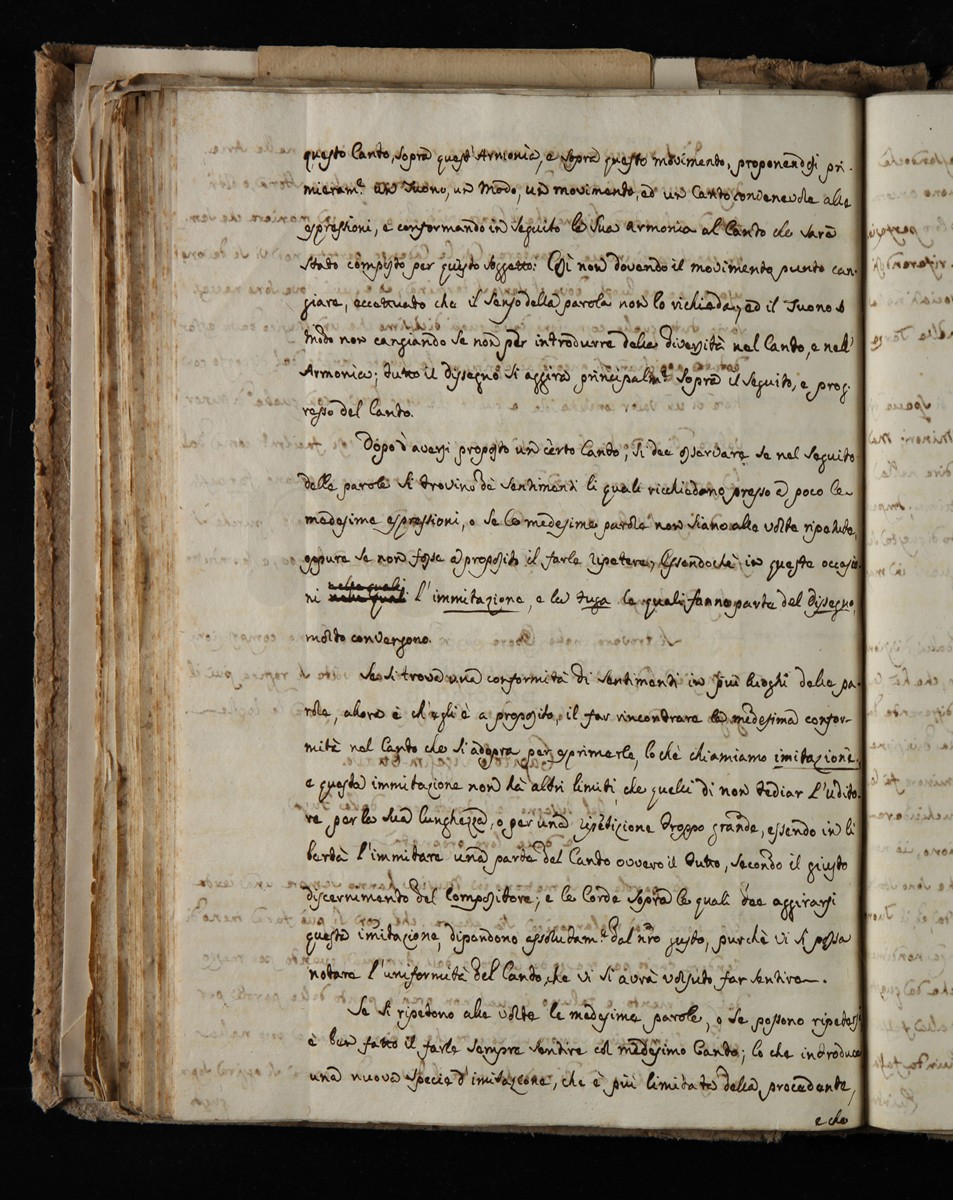 questo Canto, sopra quest'Armonia, e sopra questo movimento, proponendosi pri-
mieram.te un Tuono, un Modo, un movimento, ed un Canto convenevole alle
espressioni, e conformando in seguito la sua Armonia al Canto che sarà
stato composto per questo soggetto: Così non dovendo il movimento punto can-
giare, eccettuato che il senso della parola non lo richieda, ed il Tuono o
Modo non cangiando se non per introdurre della diversità nel Canto, e nell'
Armonia; tutto il dissegno si aggira principalm.te sopra il seguito, e prog-
resso del Canto.
Dopo d'aversi proposto un certo Canto, si dee osservare se nel seguito
delle parole si trovino de sentimenti li quali ricchiedano presso a poco le
medesime espressioni, o se le medesime parole non siano alle volte ripetute,
oppure se non fosse a proposito il farle ripetere, Essendochè in queste occasio-
ni l'immitazione, e la fuga le quali fanno parte del dissegno,
molto convengono.
Se si trova una conformità di sentimenti in più luoghi delle pa-
role, allora è ch'egli è a proposito, il far rincontrare la medesima confor-
mità nel Canto che si adopra per esprimerle, lo chè chiamiamo imitazione,
e questa immitazione non hà altri limiti, che quelli di non tediar l'udito-
re per la sua lunghezza, o per una repetizione troppo grande, essendo in li
bertà l'immitare una parte del Canto ovvero il tutto, secondo il giusto
discernimento del Compositore; e le Corde sopra le quali dee aggirarsi
questa imitazione, dipendono assolutam.te dal nr̃o gusto, purchè vi si possa
notare l'uniformità del Canto, che vi si avrà voluto far sentire.
Se si ripetono alle volte le medesime parole, o se possono ripetersi
è ben fatto il farle sempre sentire col medesimo Canto; lo che introduce
una nuova specie d'imitazione, che è più limitata della precedente,
e che